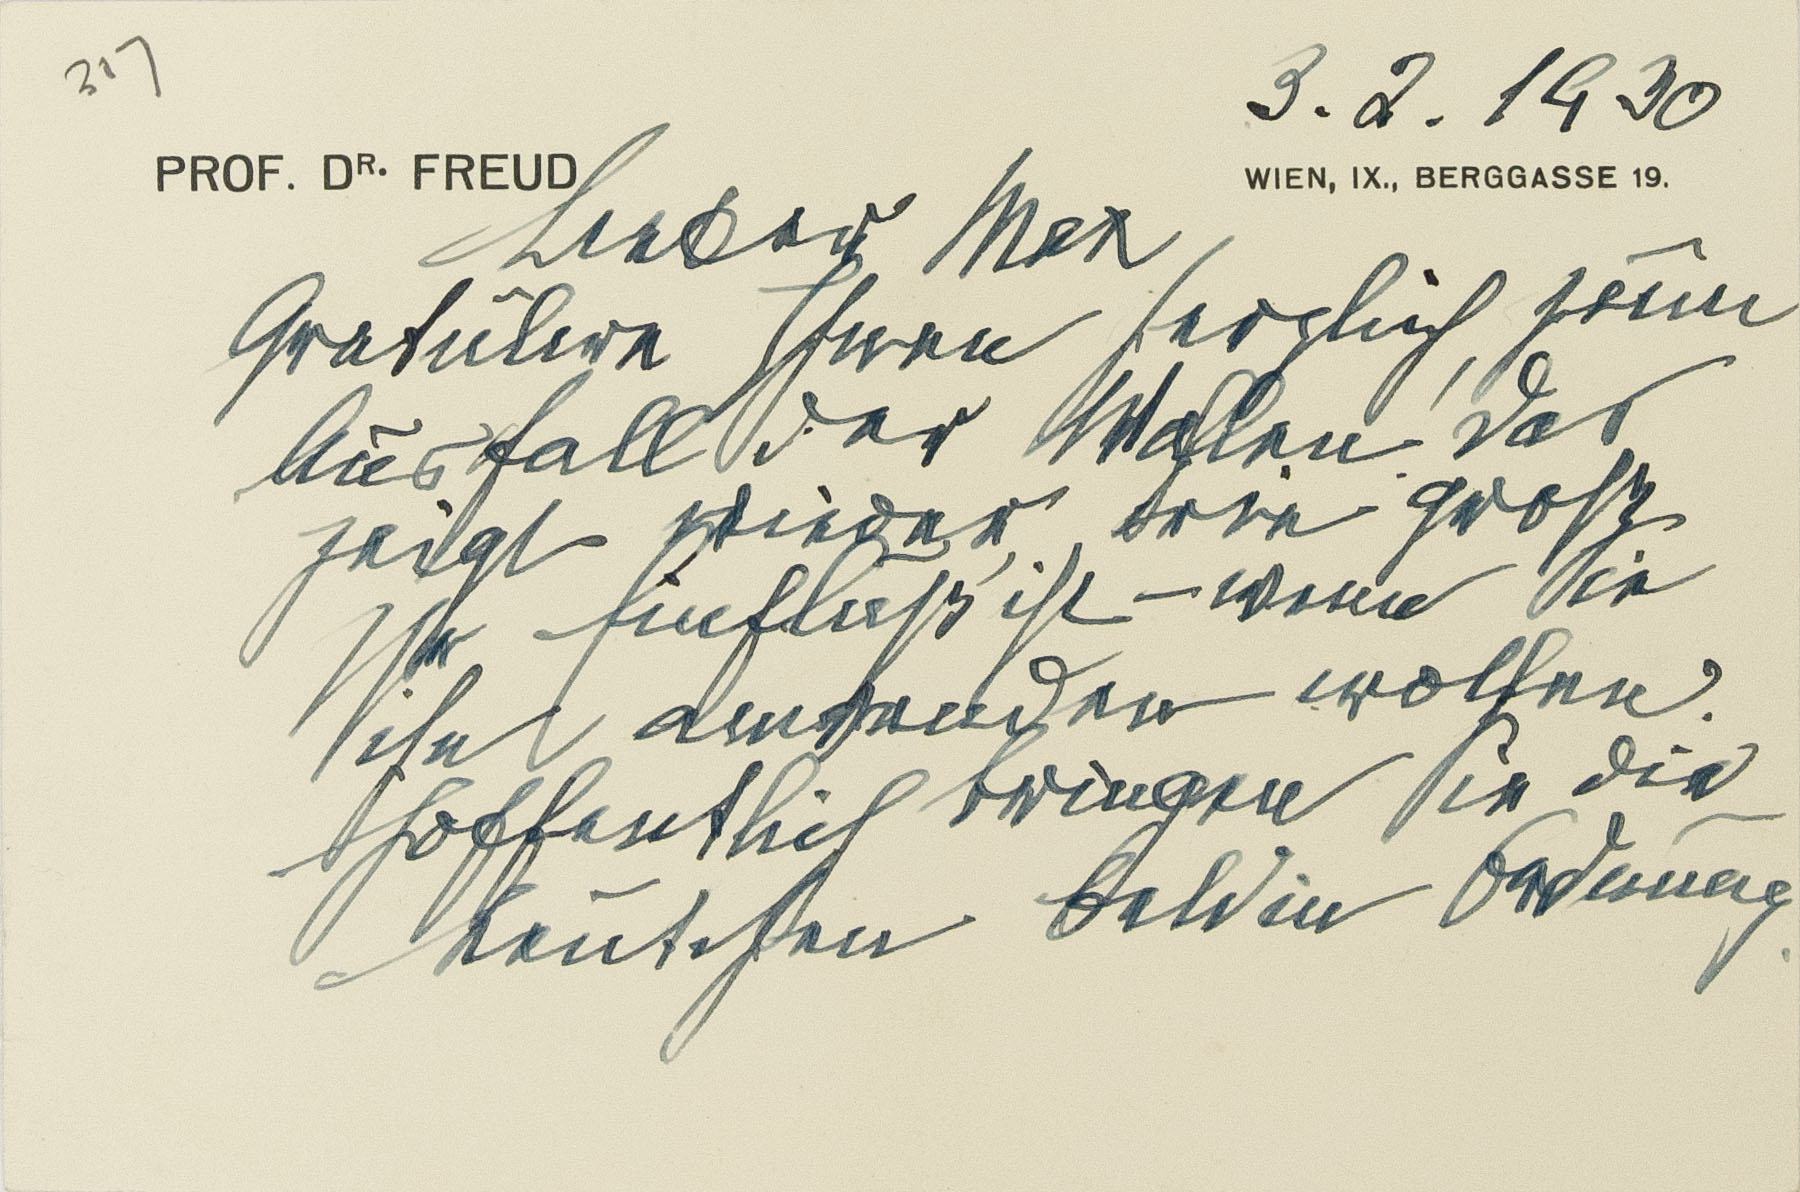 317
3. 2. 1930
PROF. DR. FREUD
WIEN, IX., BERGGASSE 19.
Lieber Max
Gratuliere Ihnen herzlich zum
Ausfall der Wahlen. Das
zeigt wieder, wie groß
Ihr Einfluß ist – wenn Sie
ihn anwenden wollen.
Hoffentlich bringen Sie die
Deutschen bald in Ordnung.